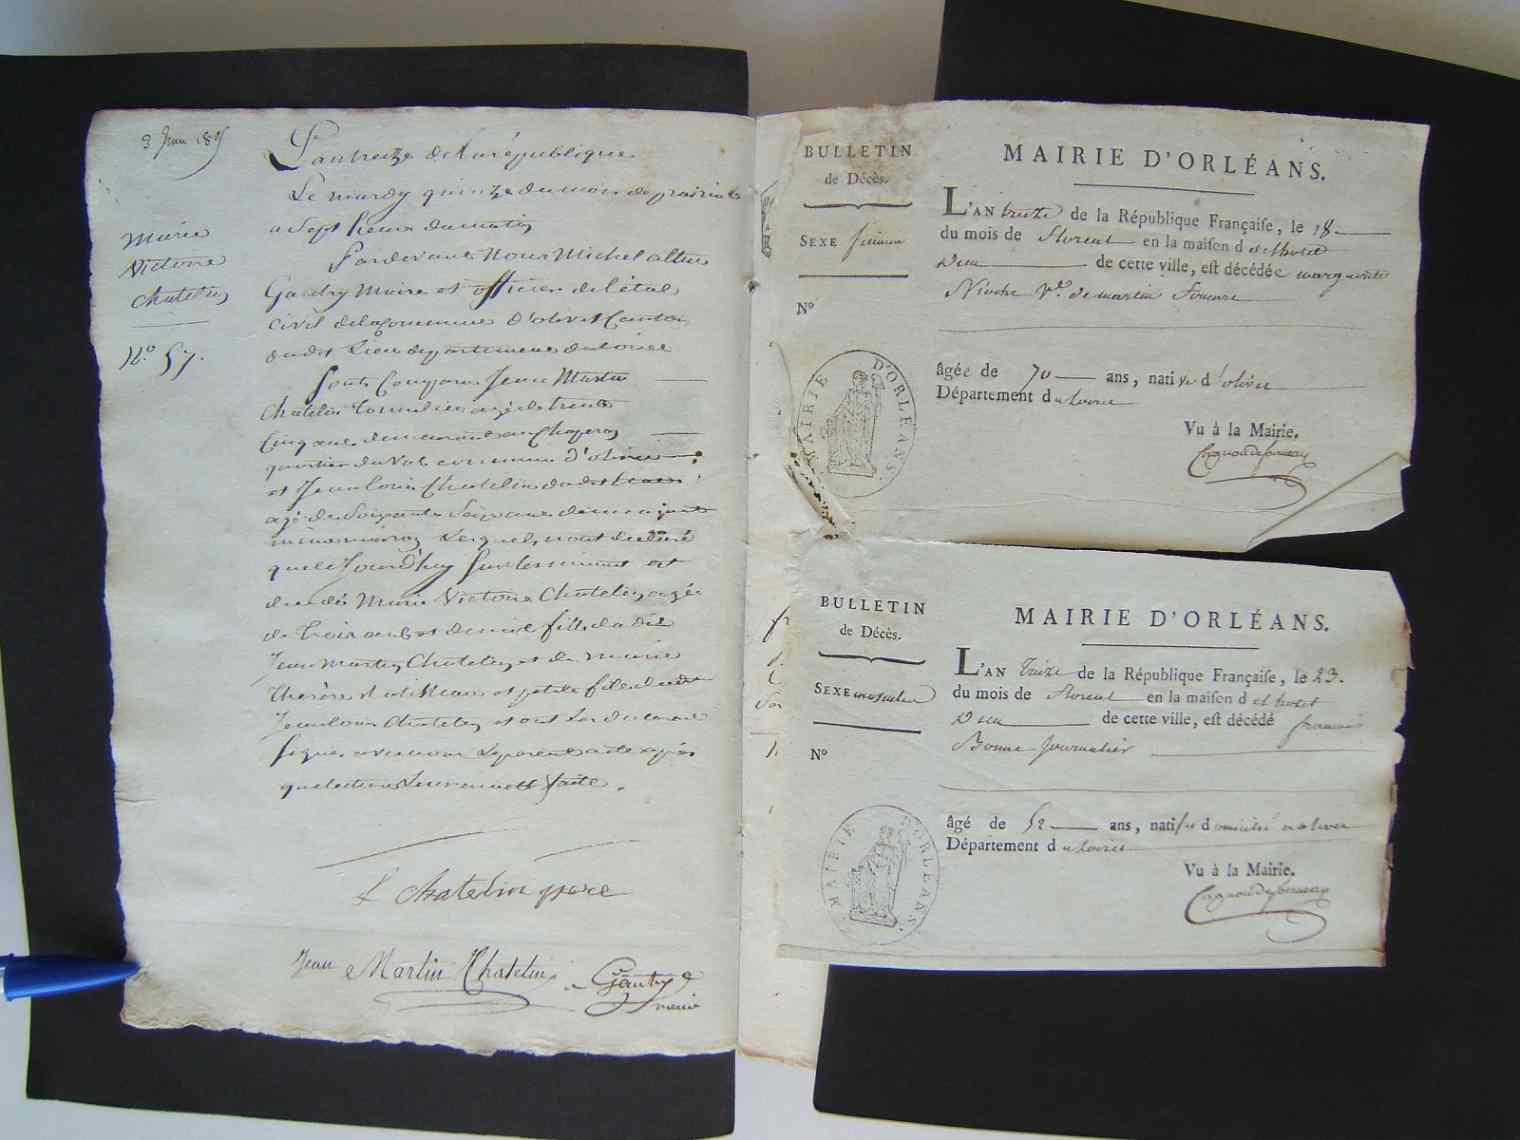 3 Juin 1805
Marie
Victoire
Chatelin
N.o 57.
L'an treize de la république
Le mardy quinze du mois de prairial
a sept heure du matin
Pardevant Nous Michel
Gaudry Maire et officier de l'état
civil de la commune d'olivet Canton
dudit Lieu departement du loiret
Sont Comparu Jean Martin
Chatelin Tonnelier agé de trente
Cinq ans demeurant au
quartier du Val commune d'olivet
et Jean louis Chatelin dudit
agé de Soixante Seize ans demeurant
Lesquels nous declaré
que le Jourdhuy Sur les minuit est
decedée Marie Victoire Chatelin agée
de trois ans et demie fille dudit
Jean Martin Chatelin et de marie
Therèse et petite fille dudit
Jean louis Chatelin et ont Les declarant
Signé avec nous Le present acte après
que lecture leur en est faite.
L Chatelin pere
Jean Martin Chatelin
maire
BULLETIN
de Décès.
SEXE féminin
No
MAIRIE D'ORLÉANS.
MAIRIE D'ORLÉANS.
L'AN treize de la République Française, le 18
du mois de floreal en la maison d de l'hotel
Dieu de cette ville, est décédée marguerite
Nioche Ve. de martin
âgée de 70 ans, native d'olivet
Département du Loiret
Vu à la Mairie.
BULLETIN
de Décès.
SEXE masculin
No
MAIRIE D'ORLÉANS.
MAIRIE D'ORLÉANS.
L'AN treize de la République Française, le 23.
du mois de floreal en la maison d el hotel
Dieu de cette ville, est décédé francois
Bonne Journalier
âgé de 52 ans, natif et domicilié a olivet
Département du loiret
Vu à la Mairie.